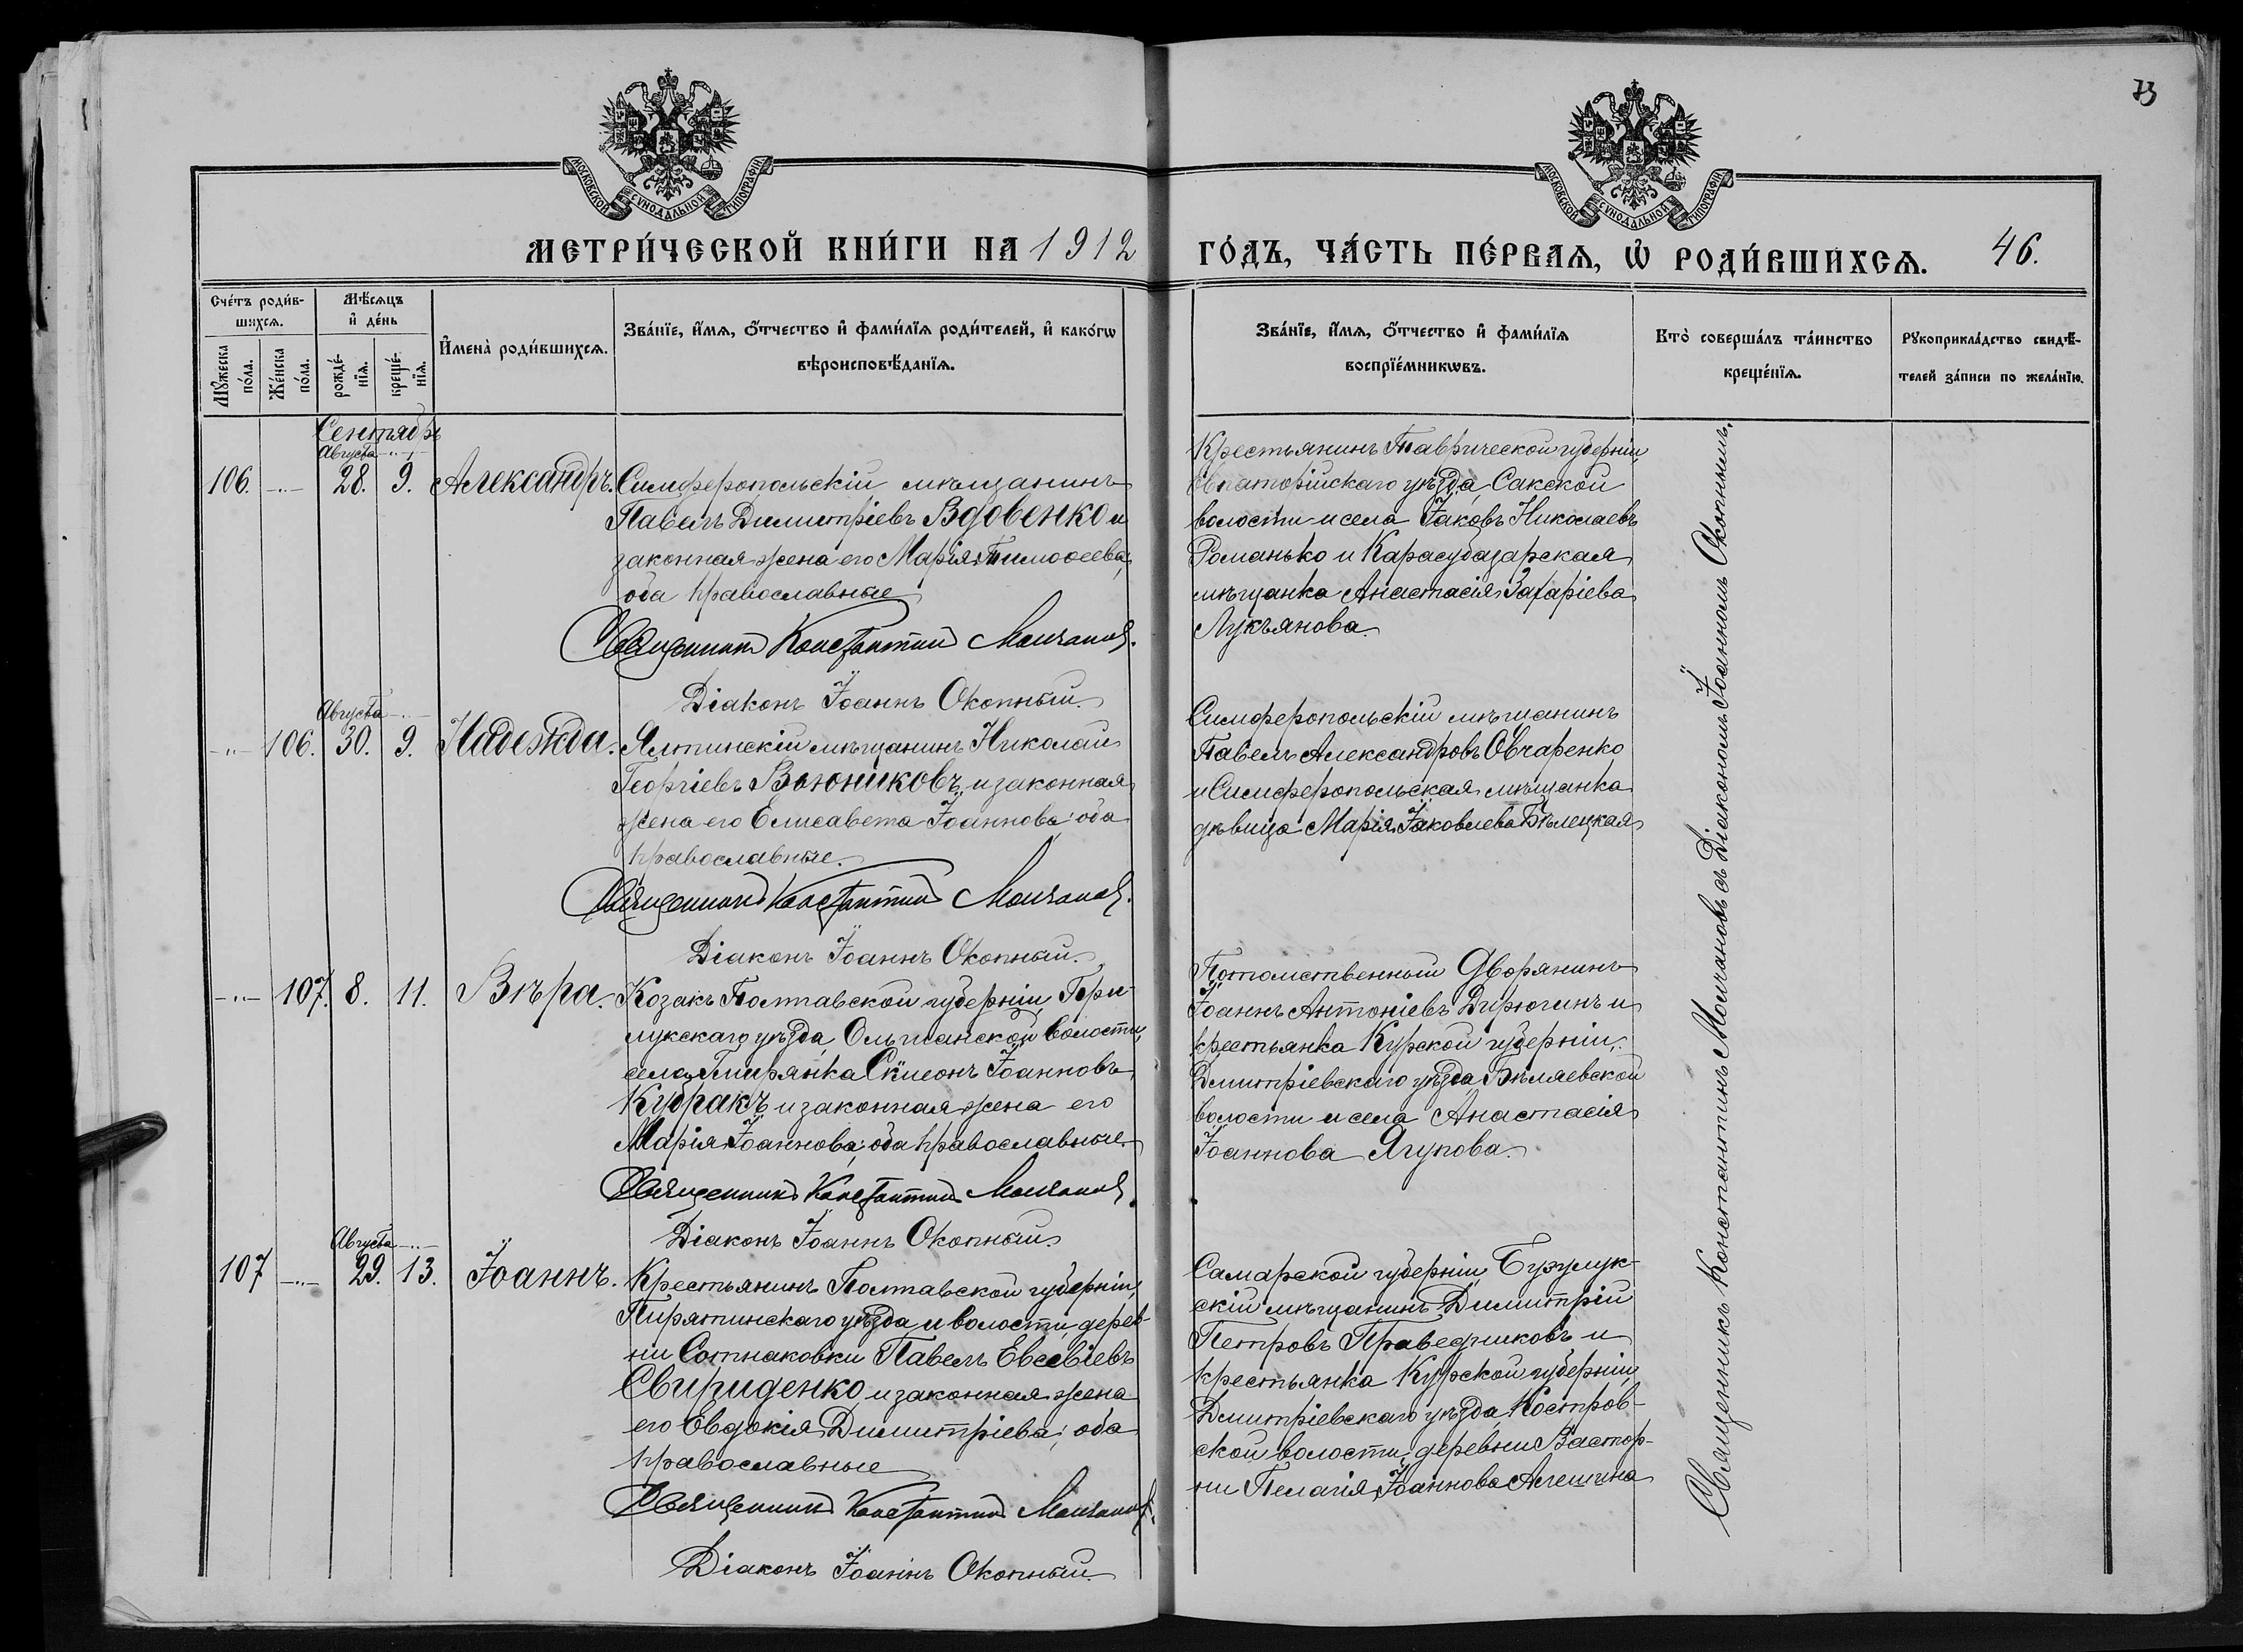 73
МОСКОВСКОЙ СѴНОДАЛЬНОЙ ТИПОГРАФІИ
МОСКОВСКОЙ СѴНОДАЛЬНОЙ ТИПОГРАФІИ
МЕТРИ́ЧЕСКОЙ КНИ́ГИ НА 1912
ГО́ДЪ, ЧА́СТЬ ПЕ́РВАѦ, Ѡ҆ РОДИ́ВШИХСѦ. 46.
Сче́тъ роди́в-
шихсѧ.
Мꙋ́жеска по́ла.
Же́нска по́ла.
Мѣ́сѧцъ
и҆ де́нь
рожде́-
нїѧ.
креще́-
нїѧ.
И҆мена̀ роди́вшихсѧ.
Зва́нїе, и҆́мѧ, ѻ҆́тчество и҆ фами́лїѧ роди́телей, и҆ како́гѡ
вѣроисповѣ́данїѧ.
Зва́нїе, и҆́мѧ, ѻ҆́тчество и҆ фами́лїѧ
воспрїе́мникѡвъ.
Кто̀ соверша́лъ та́инство
креще́нїѧ.
Рꙋкоприкла́дство свидѣ́-
телей за́писи по жела́нїю.
Сентябрь
Августа -„-
106. -„- 28. 9. Александръ. Симферопольскій мѣщанинъ
Павелъ Димитріевъ Вдовенко и
законная жена его Марія Тимоѳеева,
оба православные
Священникъ Константинъ Молчановъ.
Діаконъ Іоаннъ Окопный.
Крестьянинъ Таврической губерніи,
Евпаторійскаго уѣзда, Сакской
волости и села Іаковъ Николаевъ
Романько и Карасубазарская
мѣщанка Анастасія Захаріева
Лукъянова.
Августа -„-
-„- 106. 30. 9. Надежда. Ялтинскій мѣщанинъ Николай
Георгіевъ Вьюниковъ и законная
жена его Елисавета Іоаннова; оба
православные.
Священникъ Константинъ Молчановъ.
Діаконъ Іоаннъ Окопный.
Симферопольскій мѣщанинъ
Павелъ Александровъ Овчаренко
и Симферопольская мѣщанка
дѣвица Марія Іаковлева Бѣлецкая
-„- 107. 8. 11. Вѣра. Козакъ Полтавской губерніи, При-
лукскаго уѣзда, Ольшанской волости,
села Гмирянка Сѵмеонъ Іоанновъ
Кудракъ и законная жена его
Марія Іоаннова; оба православные.
Священникъ Константинъ Молчановъ.
Діаконъ Іоаннъ Окопный.
Потомственный Дворянинъ
Іоаннъ Антоніевъ Дирюгинъ и
крестьянка Курской губерніи,
Дмитріевскаго уѣзда Бѣляевской
волости и села Анастасія
Іоаннова Ягупова.
Августа -„-
107 -„- 29. 13. Іоаннъ. Крестьянинъ Полтавской губерніи,
Пирятинскаго уѣзда и волости, дерев-
ни Сотнаковки Павелъ Евсевіевъ
Свириденко и законная жена
его Евдокія Димитріева; оба
православные
Священникъ Константинъ Молчановъ.
Діаконъ Іоаннъ Окопный.
Самарской губерніи, Бузулук-
скій мѣщанинъ Димитрій
Петровъ Праведниковъ и
крестьянка Курской губерніи,
Дмитріевскаго уѣзда, Костров-
ской волости, деревни Растор-
ни Пелагія Іоаннова Алешина
Священникъ Константинъ Молчановъ съ Діакономъ Іоанномъ Окопнымъ.